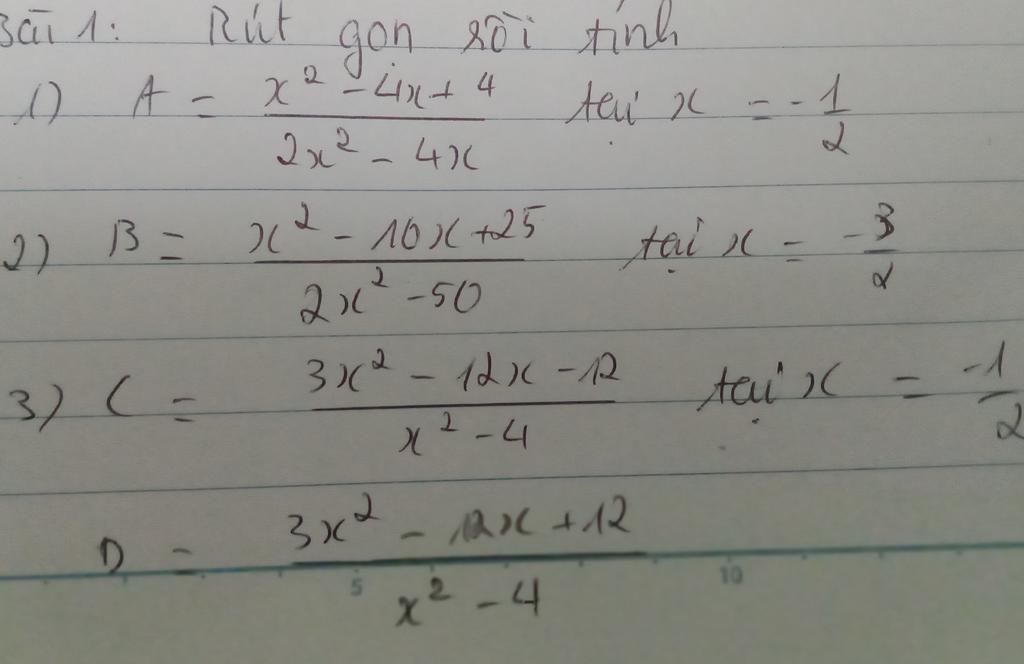 Bài 1: Rút gọn rồi tính
1) A = \frac{x² - 4x + 4}{2x² - 4x} tại x = -\frac{1}{2}
2) B = \frac{x² - 10x + 25}{2x² - 50} tại x = \frac{-3}{2}
3) C = \frac{3x² - 12x - 12}{x² - 4} tại x = \frac{-1}{2}
D = \frac{3x² - 12x + 12}{x² - 4}
5 10